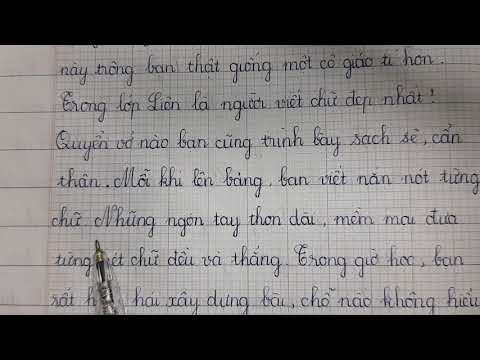 này trông bạn thật giống một cô giáo tí hon.
Trong lớp Liên là người viết chữ đẹp nhất!
Quyển vở nào bạn cũng trình bày sạch sẽ, cẩn
thận. Mỗi khi lên bảng, bạn viết nắn nót từng
chữ. Những ngón tay thon dài, mềm mại đưa
từng nét chữ đều và thẳng. Trong giờ học, bạn
rất hái xây dựng bài, chỗ nào không hiểu